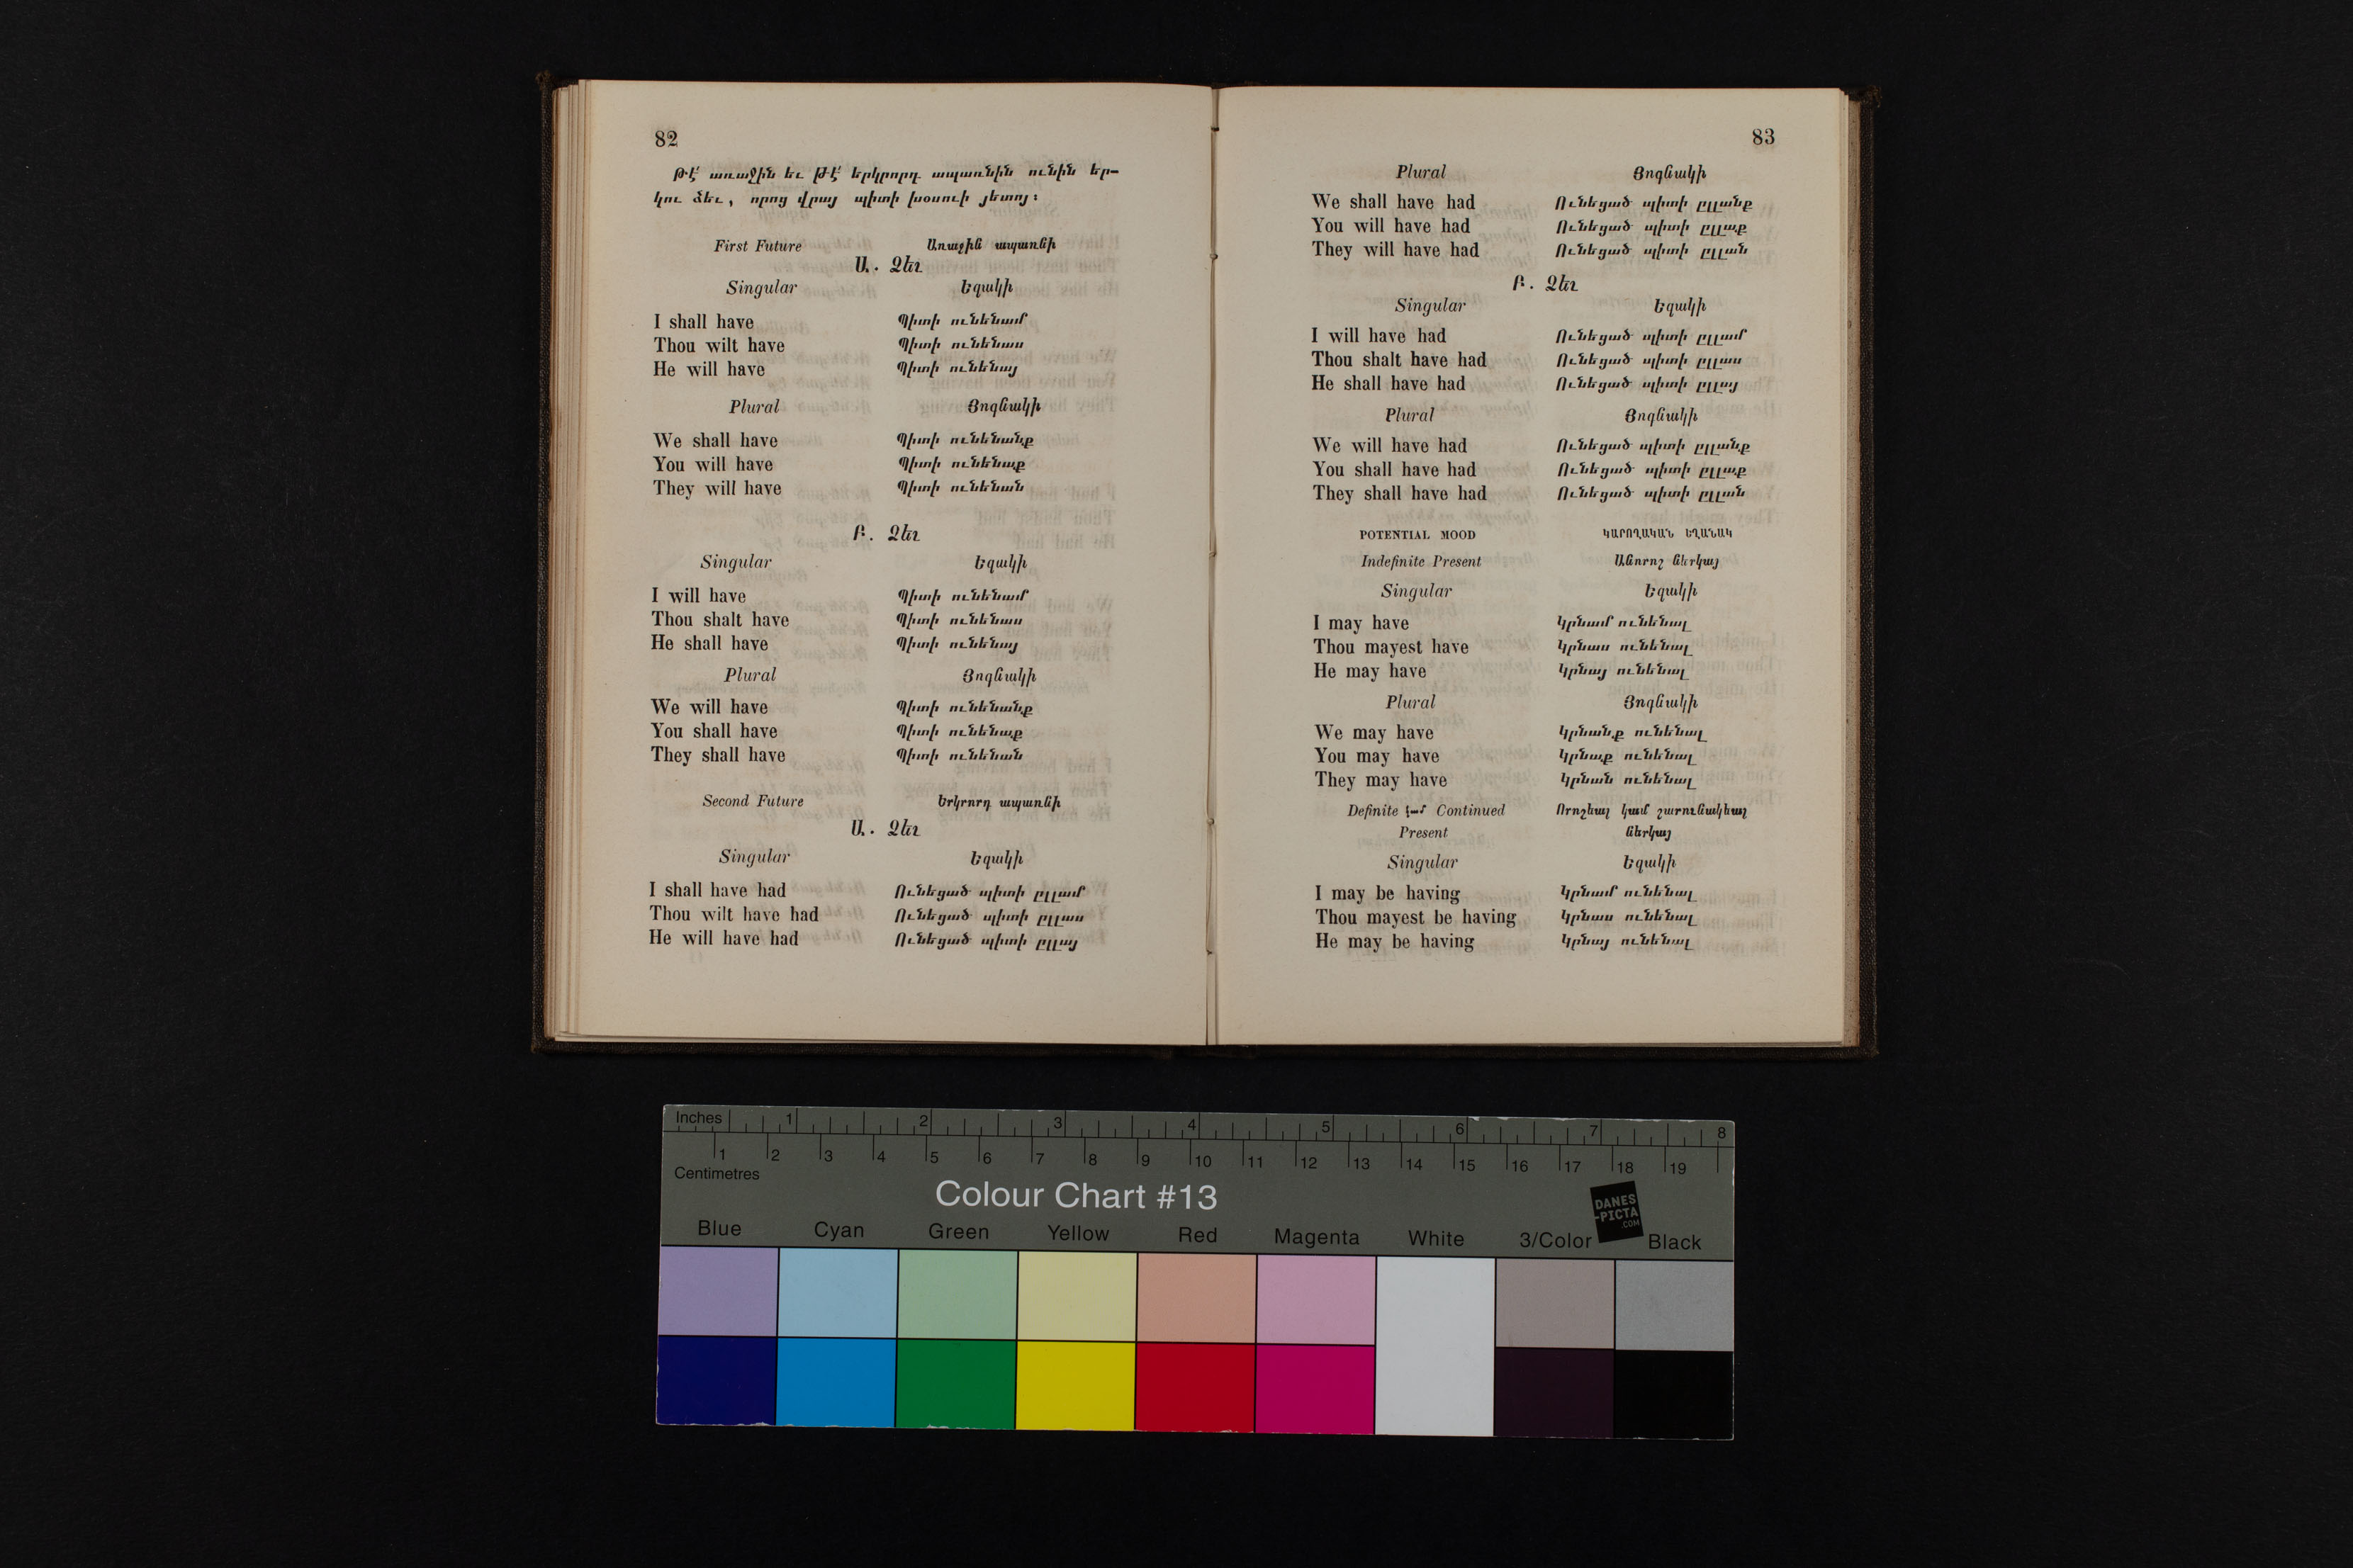 82
Թէ՛ առաջին եւ թէ՛ երկրորդ ապառնին ունին եր-
կու ձեւ, որոց վրայ պիտի խօսուի յետոյ։
First Future Առաջին ապառնի
Ա. Ձեւ
Singular Եզակի
I shall have Պիտի ունենամ
Thou wilt have Պիտի ունենաս
He will have Պիտի ունենայ
Plural Յոգնակի
We shall have Պիտի ունենանք
You will have Պիտի ունենաք
They will have Պիտի ունենան
Բ. Ձեւ
Singular Եզակի
I will have Պիտի ունենամ
Thou shalt have Պիտի ունենաս
He shall have Պիտի ունենայ
Plural Յոգնակի
We will have Պիտի ունենանք
You shall have Պիտի ունենաք
They shall have Պիտի ունենան
Second Future Երկրորդ ապառնի
Ա. Ձեւ
Singular Եզակի
I shall have had Ունեցած պիտի ըլլամ
Thou wilt have had Ունեցած պիտի ըլլաս
He will have had Ունեցած պիտի ըլլայ
83
Plural Յոգնակի
We shall have had Ունեցած պիտի ըլլանք
You will have had Ունեցած պիտի ըլլաք
They will have had Ունեցած պիտի ըլլան
Բ. Ձեւ
Singular Եզակի
I will have had Ունեցած պիտի ըլլամ
Thou shalt have had Ունեցած պիտի ըլլաս
He shall have had Ունեցած պիտի ըլլայ
Plural Յոգնակի
We will have had Ունեցած պիտի ըլլանք
You shall have had Ունեցած պիտի ըլլաք
They shall have had Ունեցած պիտի ըլլան
POTENTIAL MOOD ԿԱՐՈՂԱԿԱՆ ԵՂԱՆԱԿ
Indefinite Present Անորոշ ներկայ
Singular Եզակի
I may have Կրնամ ունենալ
Thou mayest have Կրնաս ունենալ
He may have Կրնայ ունենալ
Plural Յոգնակի
We may have Կրնանք ունենալ
You may have Կրնաք ունենալ
They may have Կրնան ունենալ
Definite կամ Continued Որոշեալ կամ շարունակեալ
Present ներկայ
Singular Եզակի
I may be having Կրնամ ունենալ
Thou mayest be having Կրնաս ունենալ
He may be having Կրնայ ունենալ
Inches 1 2 3 4 5 6 7 8
1 2 3 4 5 6 7 8 9 10 11 12 13 14 15 16 17 18 19
Centimetres
Colour Chart #13
DANES
-PICTA
.COM
Blue Cyan Green Yellow Red Magenta White 3/Color Black